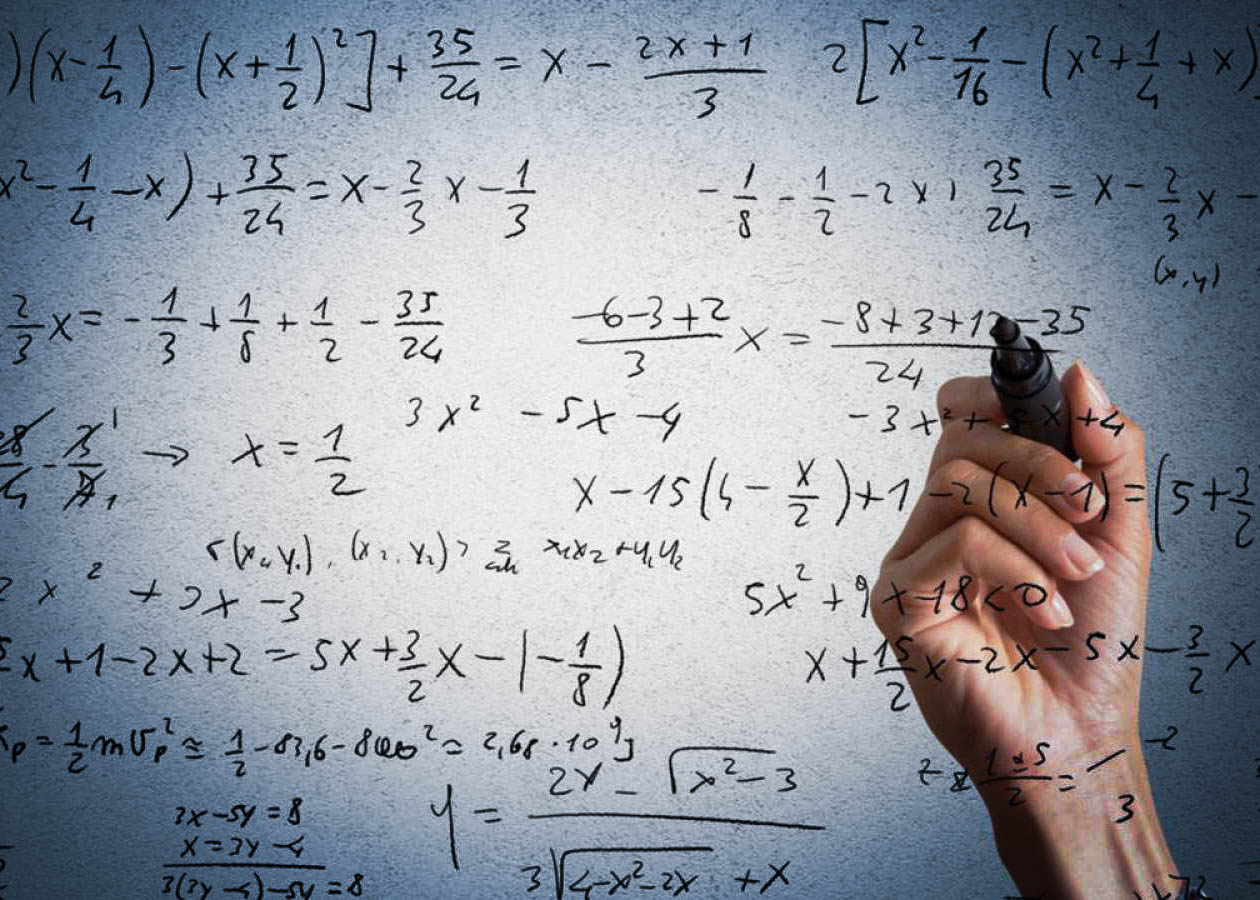 )(x-1/4)-(x+1/2)²]+35/24=x-(2x+1)/3 2[x²-1/16-(x²+1/4+x)
x²-1/4-x)+35/24=x-2/3x-1/3 -1/8-1/2-2x+35/24=x-2/3x-
(x,y)
2/3x=-1/3+1/8+1/2-35/24 (-6-3+2)/3x=(-8+3+12-35)/24
3x²-5x-4 -3x²+5x+4
→ x=1/2
x-15(4-x/2)+1-2(x-1)=(5+3/2
(x₂,y₂) x₁x₂+y₁y₂
x²+ x-3 5x²+9x-18<0
x+1-2x+2=5x+3/2x-(-1/8) x+15/2x-2x-5x-3/2x
p=1/2mυp²≅1/2-83,6- =2,68·10⁹J
y=(2x-√(x²-3))/(3√(4-x²-2x)+x)
3x-5y=8
x=3y-4
3(3y-4)-5y=8